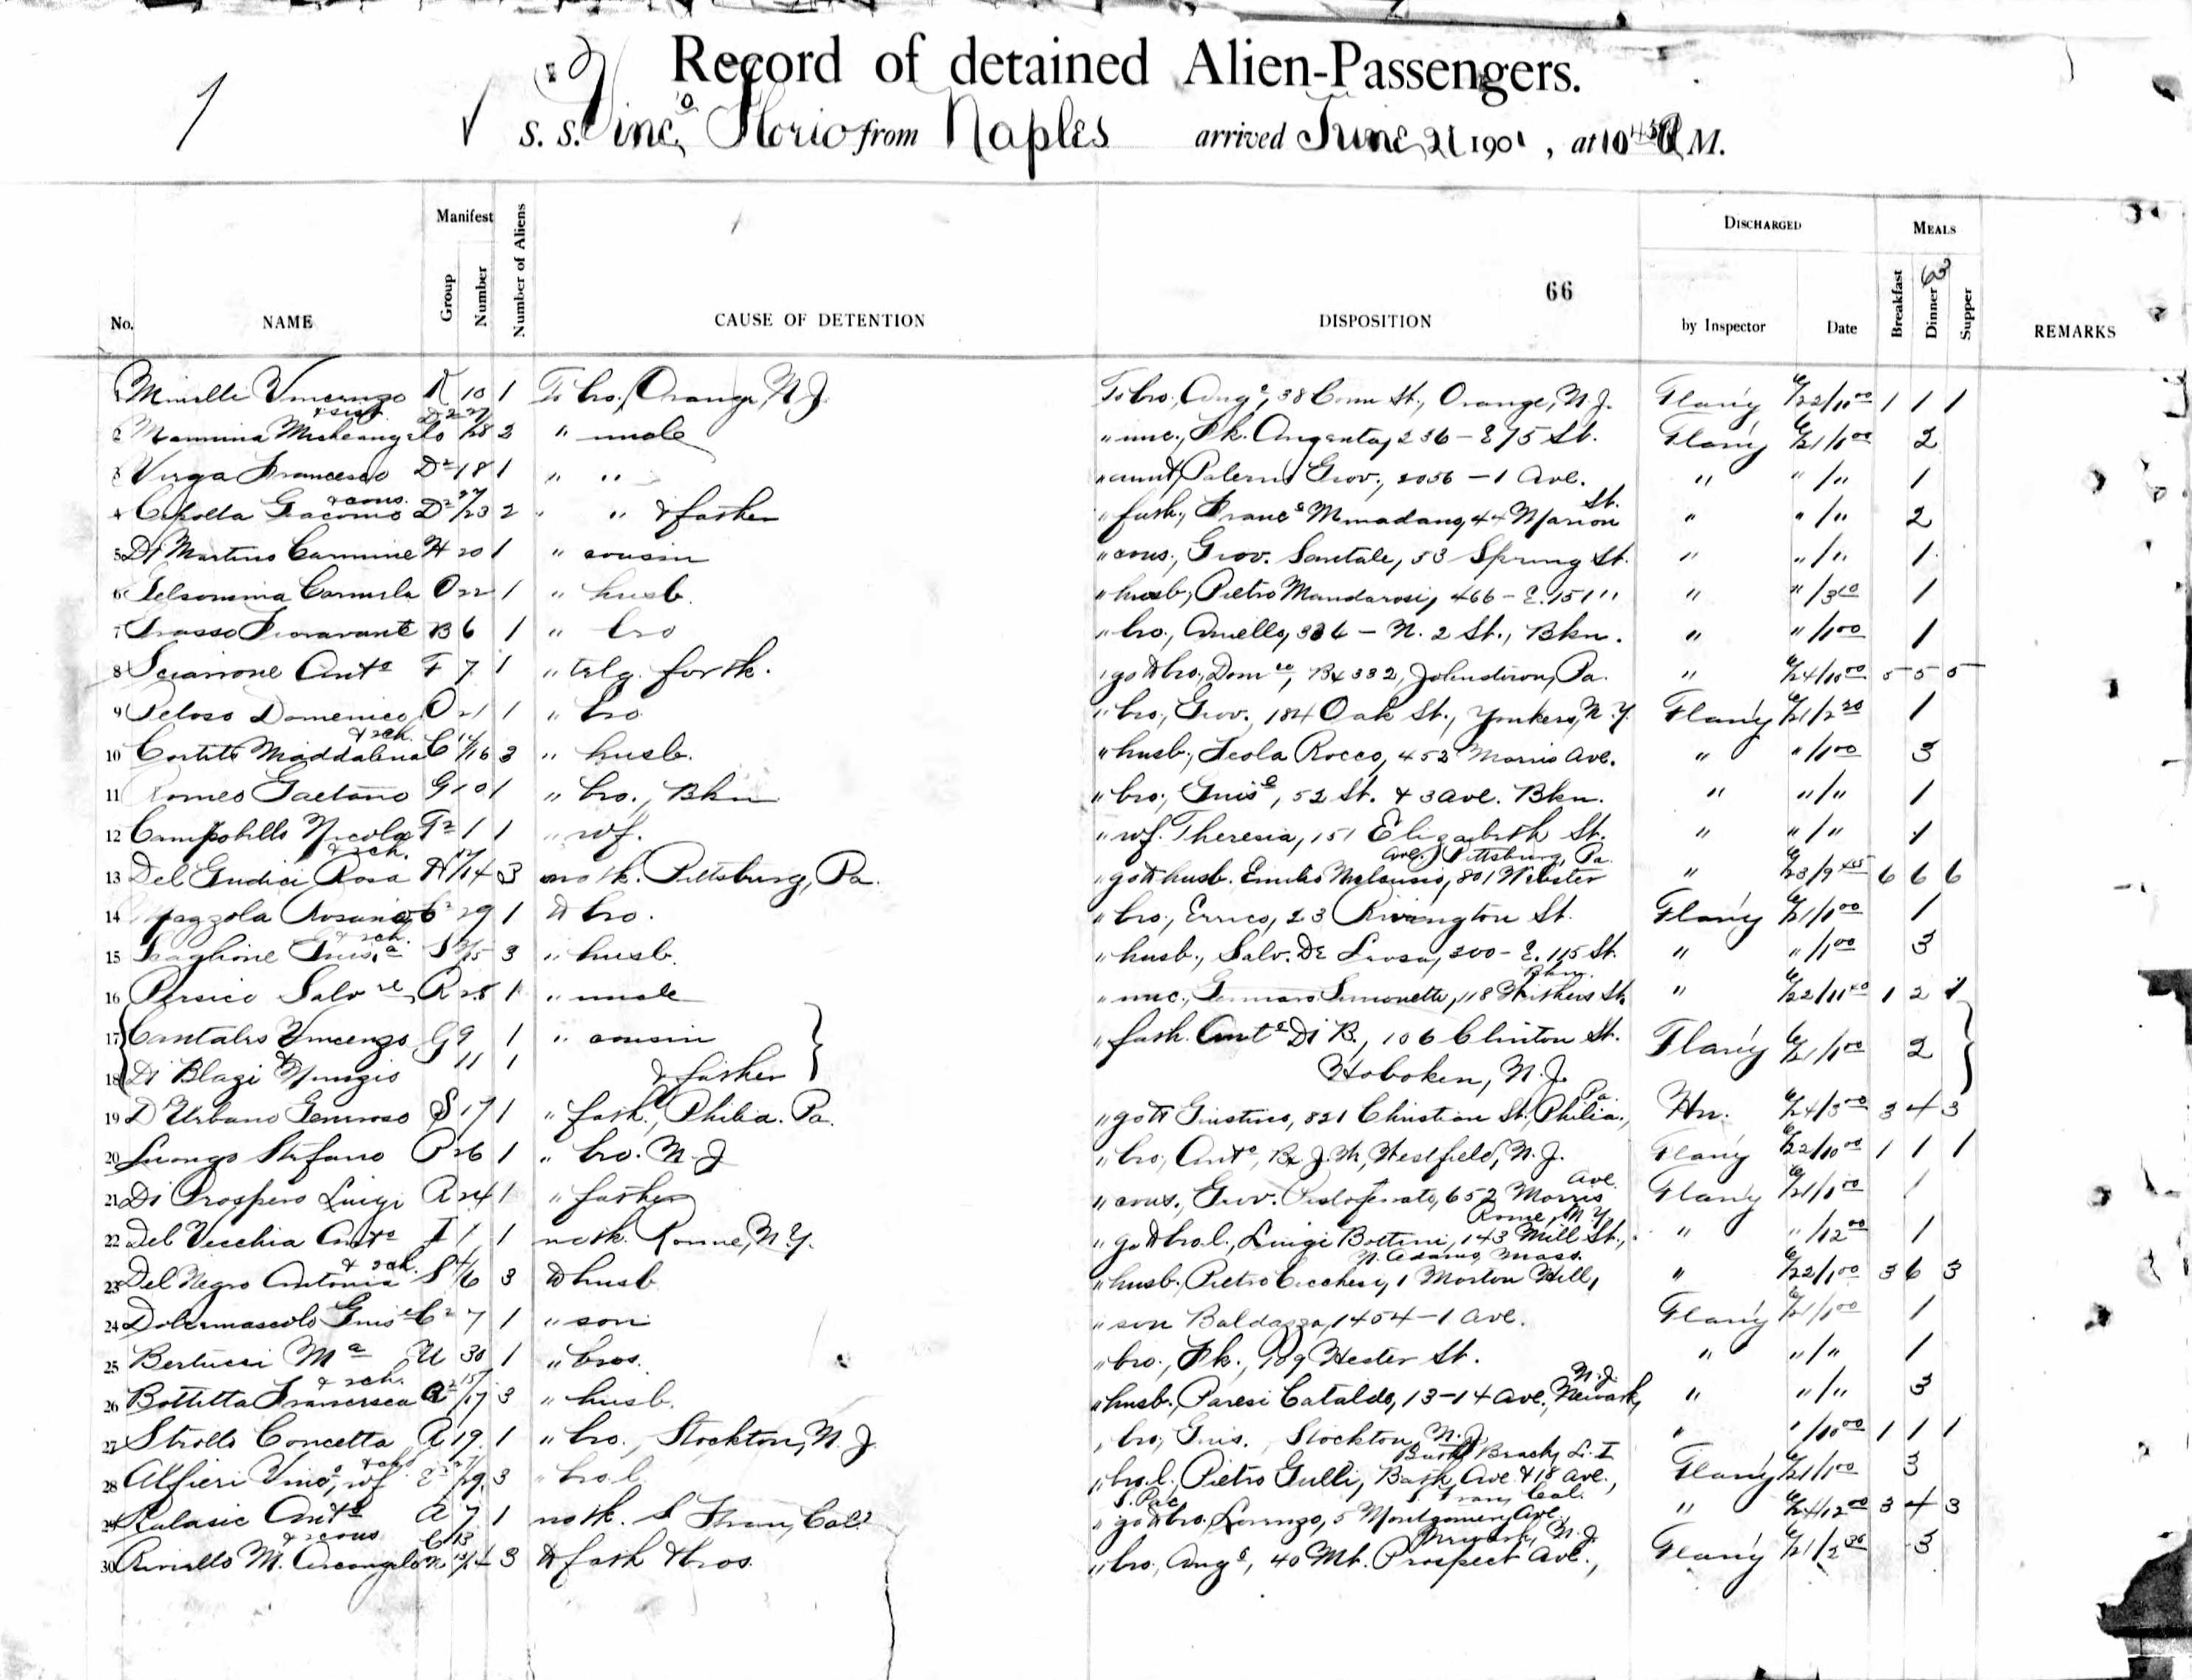 1
Record of detained Alien-Passengers.
S. S. Vinc.o Florio from Naples arrived June 21 1901, at 10 45 A M.
Manifest DISCHARGED MEALS
66 63
No. NAME Group Number Number of Aliens CAUSE OF DETENTION DISPOSITION by Inspector Date Breakfast Dinner Supper REMARKS
1 Vincenzo K 10 1 To bro., Orange, N. J. To bro., Ango, 38 Conn St., Orange, N. J. Flany 6/22/11 00 1 1 1
& sist. D2 27
2 Mammina Micheangelo /28 2 " uncle " unc., Fk. Argenta, 236 - E 75 St. Flany 6/21/1 00 2
3 Virga Francesco D2 18 1 " " " aunt Palermo Giov., 2056 - 1 Ave. " " / " 1
& cous. 27 St.
4 Cipolla Giacomo D2 /23 2 " " & father " fath., Franco 44 Marion " " / " 2
5 Di Martino Carmine H 20 1 " cousin " cous., Giov. Santale, 53 Spring St. " " / " 1
6 Gelsomina Carmela O 22 1 " husb. " husb., Pietro Mandarosi, 466 - E. 151 " " " /3 00 1
7 Grasso Fioravante B 6 1 " bro " bro., Aniello, 336 - N. 2 St., Bkn. " " /1 00 1
8 Sciarrone Anto F 7 1 " telg. for tk. " go to bro., Domco, Bx 332, Pa. " 6/24/10 00 5 5 5
9 Peloso Domenico O 21 1 " bro " bro., Giov., 184 Oak St., Yonkers, N. Y. Flany 6/21/2 30 1
& 2 ch. 14
10 Maddalena C /16 3 " husb. " husb., Rocco, 452 Morris Ave. " " /1 00 3
11 Romeo Gaetano G 10 1 " bro., Bkn " bro., Guise, 52 St. & 3 Ave. Bkn. " " / " 1
12 Campobello Nicola F2 1 1 " wf. " wf. Theresia, 151 Elizabeth St. " " / " 1
& 2 ch. 12 Ave., Pittsburg, Pa.
13 Del Giudici Rosa H /14 3 no tk. Pittsburg, Pa. " go to husb. Emilio 801 Webster " 6/23/9 6 6 6
14 C2 29 1 to bro. " bro., Errico, 23 Rivington St. Flany 6/21/1 00 1
& 2 ch.
15 Scaglione Guis.a S /25 3 " husb. " husb., Salv. De 300 - E. 115 St. " " /1 00 3
Bkn.
16 Persico Salvre R 28 1 " uncle " unc., Gennaro Simonetti, 118 St. " 6/22/11 40 1 2 1
17 Vincenzo G 9 1 " cousin " fath. Anto Di B., 106 Clinton St. Flany 6/21/1 00 2
18 & Di Blazi Nunzio 11 1 & father Hoboken, N. J.
Pa.
19 D'Urbano Generoso S 17 1 " fath., Philia. Pa. " go to Giustino, 821 Christian St., Philia., Hn. 6/24/3 00 3 4 3
20 Luongo Stefano P 26 1 " bro. N. J " bro., Anto, Westfield, N. J. Flany 6/22/10 00 1 1 1
Ave.
21 Di Prospero Luigi R 24 1 " father " cous., Giov. 652 Morris Flany 6/21/1 00 1
Rome, N. Y.
22 Del Vecchia Anto I 1 1 no tk. Rome, N. Y. " go to bro l., Luigi Bottini, 143 Mill St., " " /12 00 1
& 2 ch. 4 N. Adams, Mass.
23 Del Negro Antonia S /6 3 to husb " husb. Pietro 1 Morton Hill, " 6/22/1 00 3 6 3
24 Guise C2 7 1 " son " son 1454 - 1 Ave. Flany 6/21/1 00 1
25 Bertucci Ma U 30 1 " bros. " bro., Fk., 189 Hester St. " " / " 1
& 2 ch. 15 N. J.
26 Bottitta Francesca R2 /17 3 " husb. " husb., Paresi Cataldo, 13 - 14 Ave., Newark, " " / " 3
27 Strollo Concetta R 19 1 " bro., Stockton, N. J. " bro., Guis., Stockton, N. J. " " /10 00 1 1 1
& ch Bath Beach, L. I
28 Alfieri Vinco, wf E2 /29 3 " bro l. " bro l. Pietro Gulli, Bath Ave & 18 Ave., Flany 6/21/1 00 3
S. Pac. S. Fran, Cal.
29 Anto A 7 1 no tk. S Fran, Cal. " go to bro. Lorenzo, 5 Montgomery Ave., " 6/24/12 00 3 4 3
& 2 cous C 13 Newark, N. J.
30 Riviello M. Arcangelo N 13/14 3 to fath & bros. " bro., Ango, 40 Mt. Prospect Ave., Flany 6/21/2 30 3